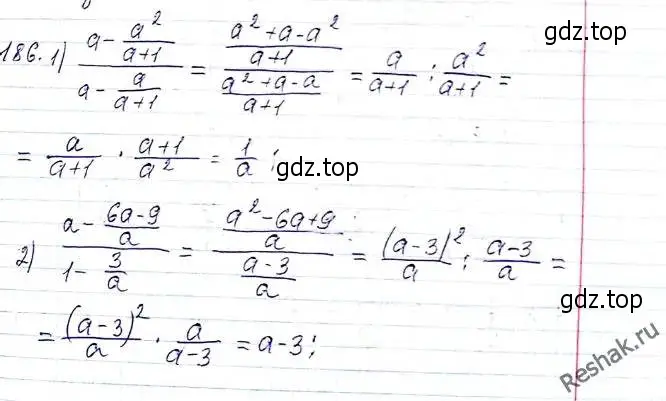 186. 1) \frac{a - \frac{a^2}{a+1}}{a - \frac{a}{a+1}} = \frac{\frac{a^2+a-a^2}{a+1}}{\frac{a^2+a-a}{a+1}} = \frac{a}{a+1} : \frac{a^2}{a+1} =
= \frac{a}{a+1} \cdot \frac{a+1}{a^2} = \frac{1}{a};
2) \frac{a - \frac{6a-9}{a}}{1 - \frac{3}{a}} = \frac{\frac{a^2-6a+9}{a}}{\frac{a-3}{a}} = \frac{(a-3)^2}{a} : \frac{a-3}{a} =
= \frac{(a-3)^2}{a} \cdot \frac{a}{a-3} = a-3;
gdz.top
gdz.top
gdz.top
gdz.top
gdz.top
Reshak.ru